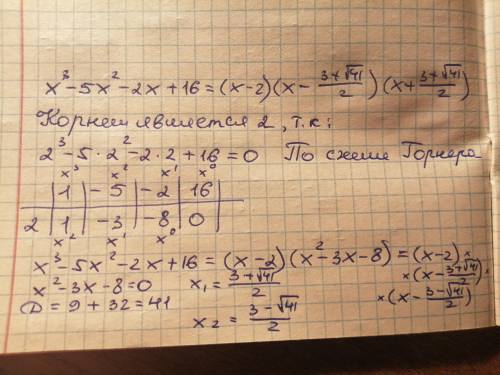 x³-5x²-2x+16=(x-2)(x-\frac{3+√41}{2})(x+\frac{3+√41}{2})
Корнем является 2, т.к:
2³-5·2²-2·2+16=0 По схеме Горнера
x³ x² x¹ x⁰
| 1 | -5 | -2 | 16
2 | 1 | -3 | -8 | 0
x² x¹ x⁰
x³-5x²-2x+16=(x-2)(x²-3x-8)=(x-2)×
×(x-\frac{3+√41}{2})×
×(x-\frac{3-√41}{2})
x²-3x-8=0 x₁=\frac{3+√41}{2}
D=9+32=41
x₂=\frac{3-√41}{2}